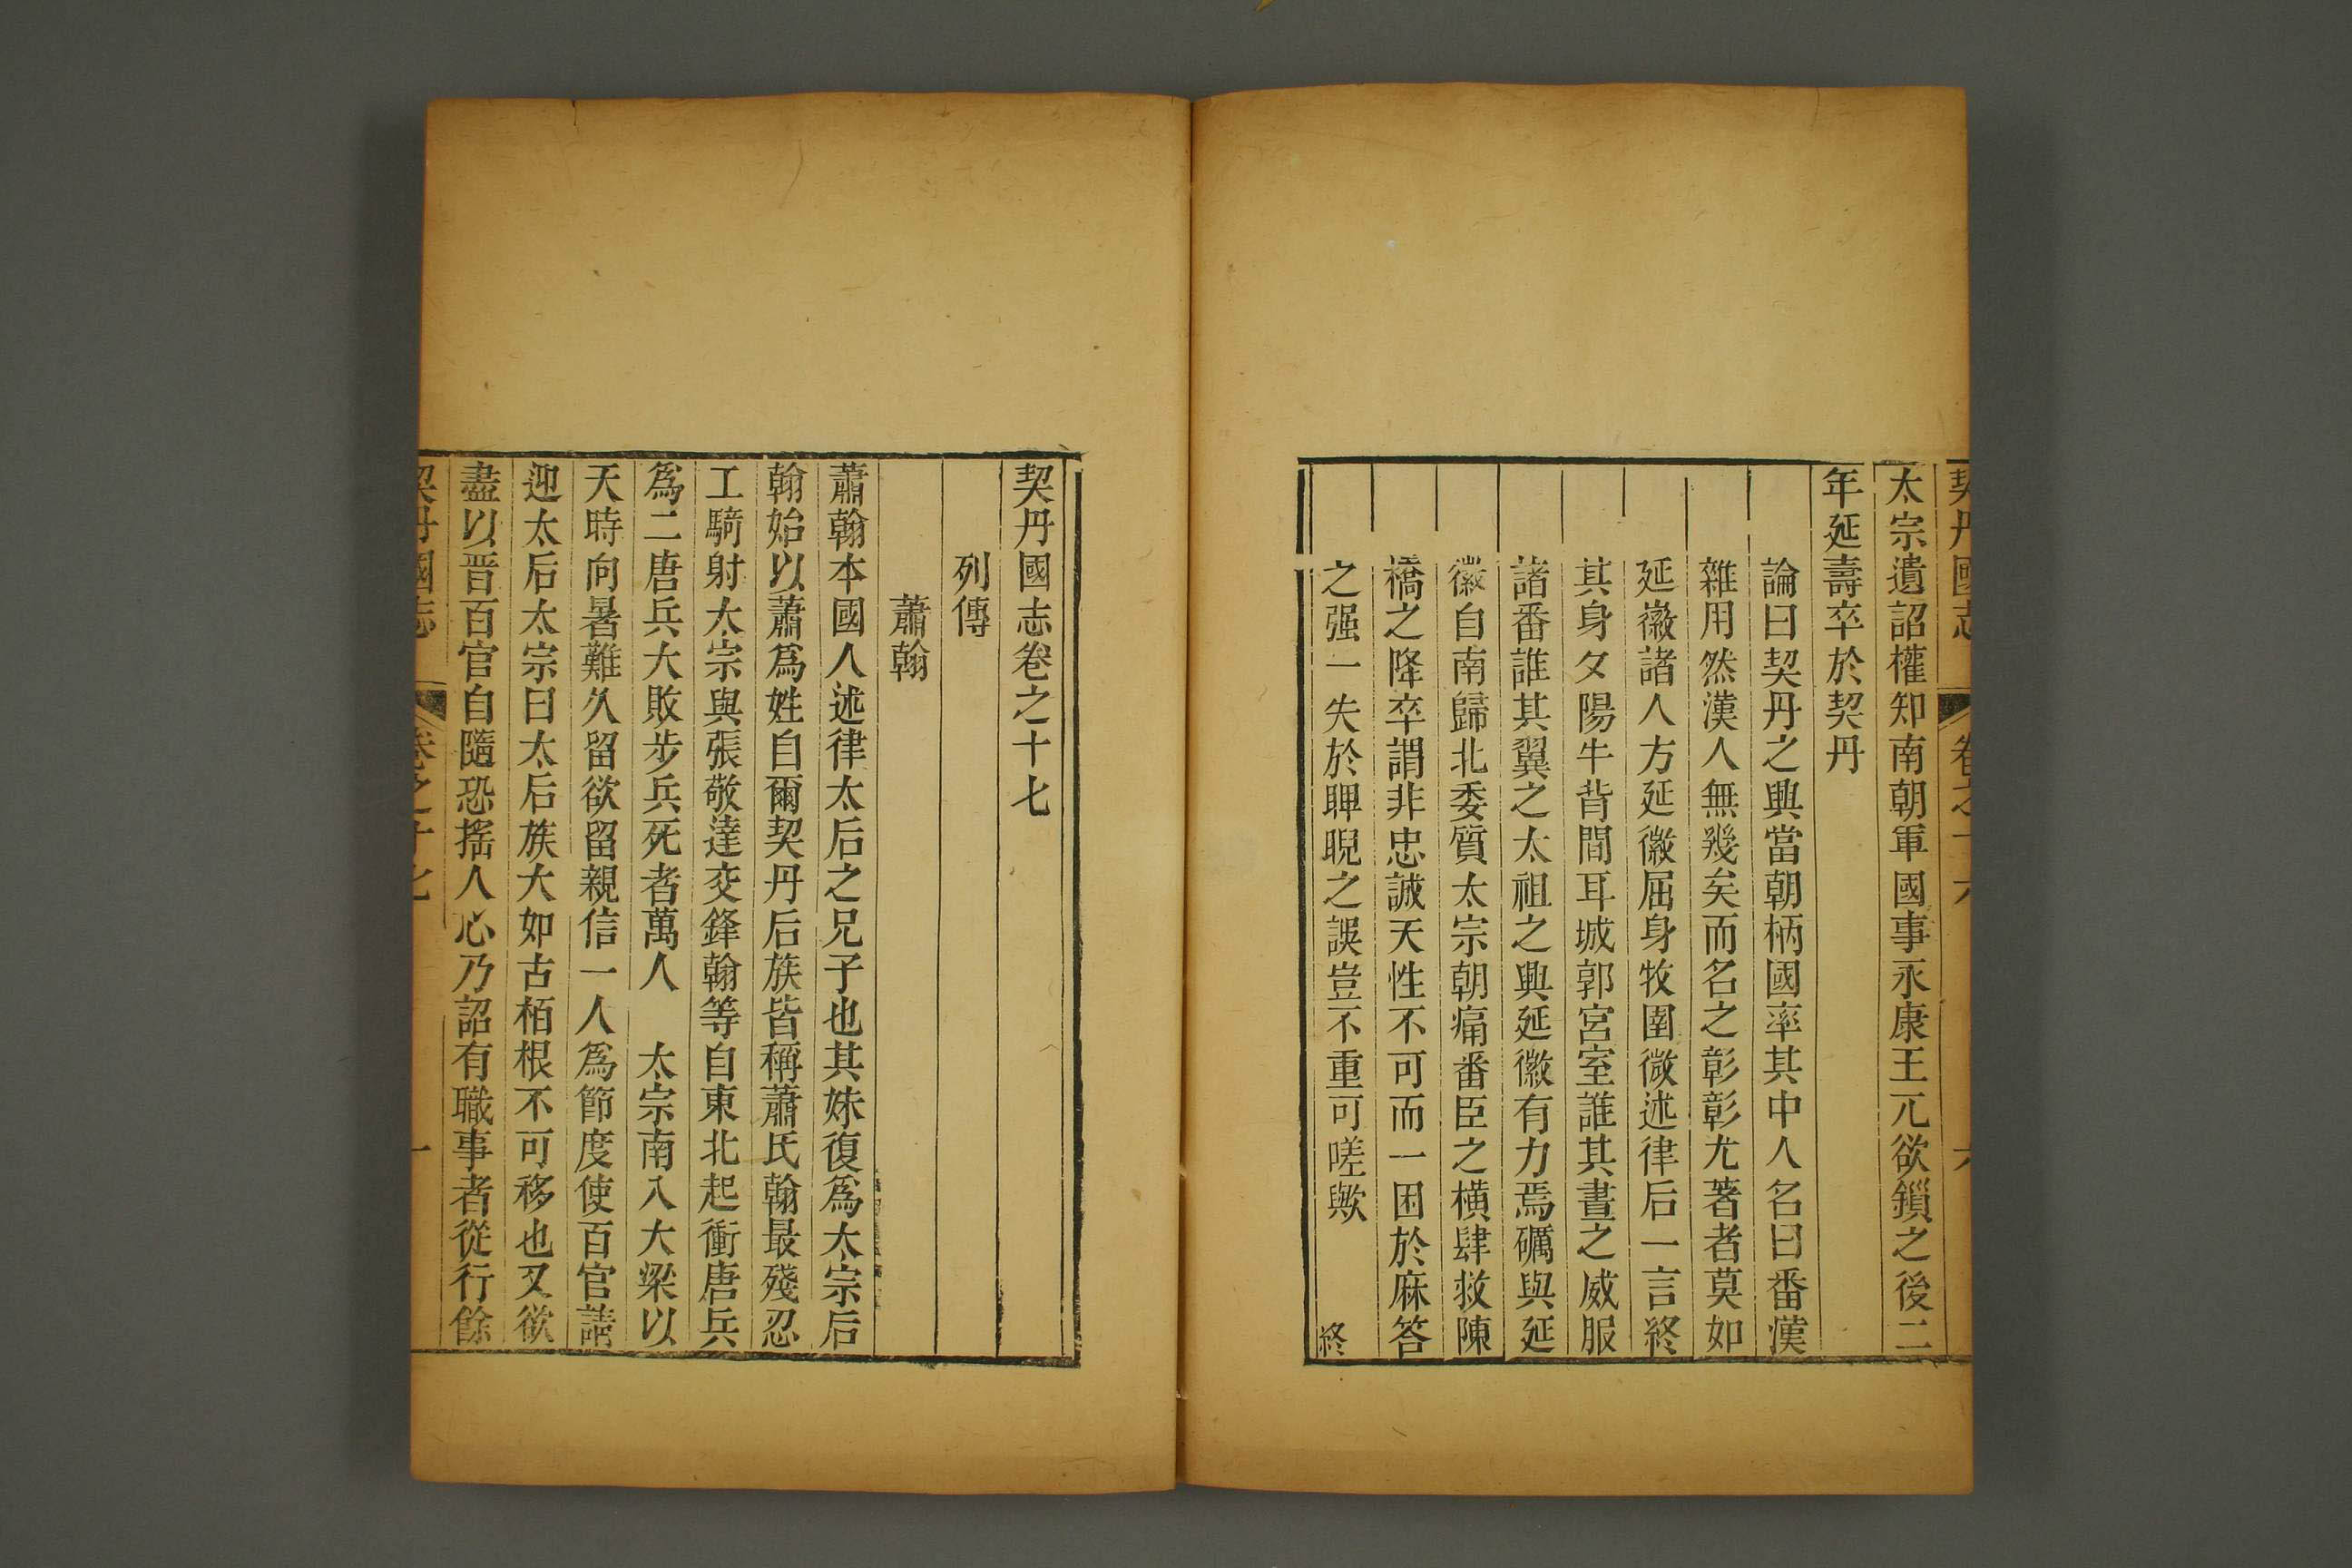 契丹國志 卷之十六 六
太宗遺詔權知南朝軍國事永康王兀欲鎻之後二
年延壽卒於契丹
論曰契丹之興當朝柄國率其中人名曰番漢
雜用然漢人無幾矣而名之彰彰尤著者莫如
延徽諸人方延徽屈身牧圉微述律后一言終
其身夕陽牛背間耳城郭宮室誰其晝之威服
諸番誰其翼之太祖之興延徽有力焉礪與延
徽自南歸北委質太宗朝痛番臣之橫肆救陳
橋之降卒謂非忠誠天性不可而一困於麻答
之强一失於睥睨之誤豈不重可嗟歟 終
契丹國志卷之十七
列傳
蕭翰
蕭翰本國人述律太后之兄子也其妹復爲太宗后
翰始以蕭爲姓自爾契丹后族皆稱蕭氏翰最殘忍
工騎射太宗與張敬達交鋒翰等自東北起衝唐兵
爲二唐兵大敗步兵死者萬人 太宗南入大梁以
天時向暑難久留欲留親信一人爲節度使百官請
迎太后太宗曰太后族大如古栢根不可移也又欲
盡以晋百官自隨恐搖人心乃詔有職事者從行餘
契丹國志 卷之十七 一